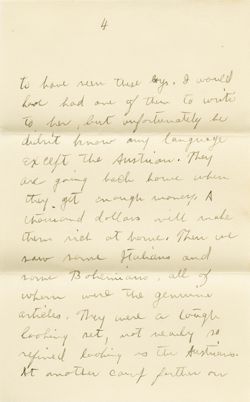 4
to have seen these boys. I would
have had one of them to write
to her, but unfortunately he
didn't know any language
except the Austrian. They
are going back home when
they get enough money. A
thousand dollars will make
them rich at home. Then we
saw some Italians and
some Bohemians, all of
whom were the genuine
articles. They were a tough
looking set, not nearly so
refined looking as the Austrians.
At another camp further on